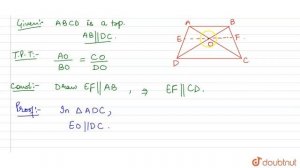 Given:- ABCD is a trap.
AB||DC.
T.P.T:- AO/BO = CO/DO
Const:- Draw EF||AB, ⇒ EF||CD.
Proof:- In △ADC,
EO||DC.
A B
E O F
D C
doubtnut